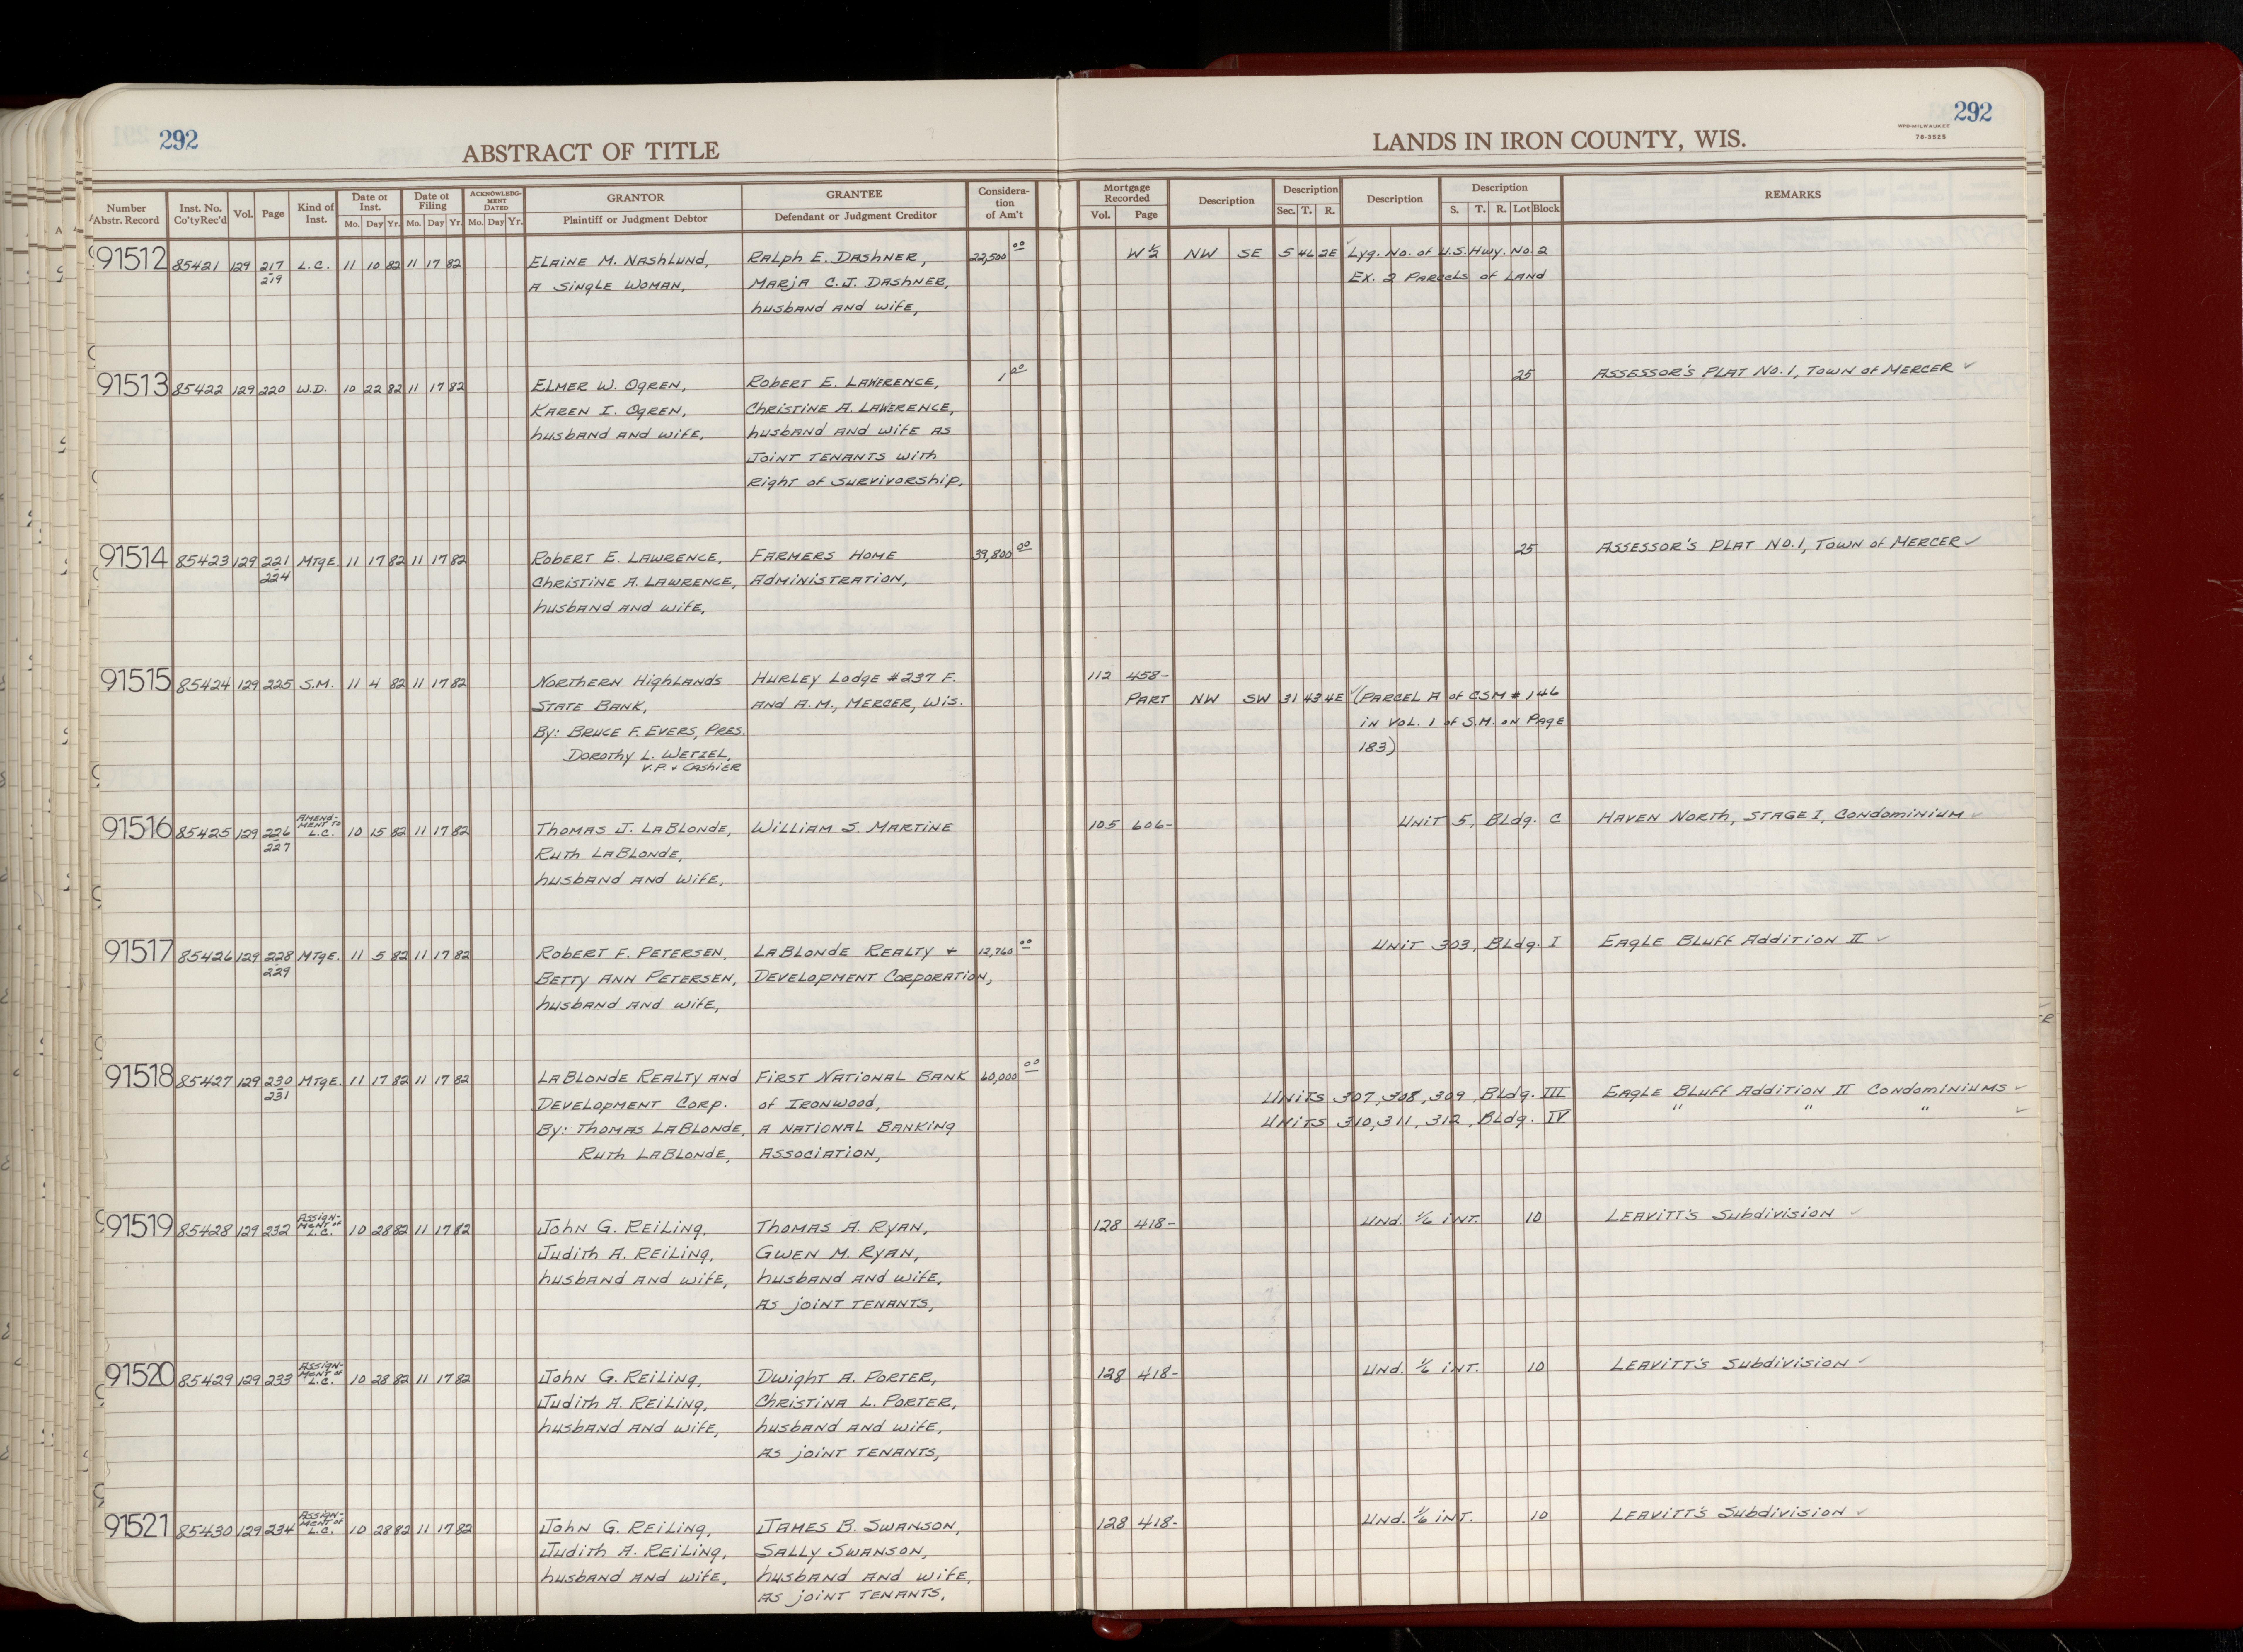 292
ABSTRACT OF TITLE
LANDS IN IRON COUNTY, WIS.
WPB-MILWAUKEE
78-3525
292
Number Abstr. Record | Inst. No. Co'tyRec'd | Vol. | Page | Kind of Inst. | Date of Inst. Mo. Day Yr. | Date of Filing Mo. Day Yr. | ACKNOWLEDGMENT DATED Mo. Day Yr. | GRANTOR Plaintiff or Judgment Debtor | GRANTEE Defendant or Judgment Creditor | Consideration of Am't | Mortgage Recorded Vol. Page | Description | Description Sec. T. R. | Description | Description S. T. R. Lot Block | REMARKS
91512 85421 129 217 L.C. 11 10 82 11 17 82 Elaine M. Nashlund, Ralph E. Dashner, 22,500 00 W 1/2 NW SE 5 46 2E Lyg. No. of U.S. Hwy. No. 2
219 A Single Woman, Marja C.J. Dashner, Ex. 2 Parcels of Land
husband and wife,
91513 85422 129 220 W.D. 10 22 82 11 17 82 Elmer W. Ogren, Robert E. Lawerence, 1 00 25 Assessor's Plat No. 1, Town of Mercer ✓
Karen I. Ogren, Christine A. Lawerence,
husband and wife, husband and wife as
Joint Tenants with
Right of Survivorship,
91514 85423 129 221 Mtge. 11 17 82 11 17 82 Robert E. Lawrence, Farmers Home 39,800 00 25 Assessor's Plat No. 1, Town of Mercer ✓
224 Christine A. Lawrence, Administration,
husband and wife,
91515 85424 129 225 S.M. 11 4 82 11 17 82 Northern Highlands Hurley Lodge #237 F. 112 458-
State Bank, and A.M., Mercer, Wis. Part NW SW 31 43 4E ✓ (Parcel A of CSM # 146
By: Bruce F. Evers, Pres. in Vol. 1 of S.M. on Page
Dorothy L. Wetzel, 183)
V.P. + Cashier
91516 85425 129 226 Amendment to L.C. 10 15 82 11 17 82 Thomas J. LaBlonde, William S. Martine 105 606- Unit 5, Bldg. C Haven North, Stage I, Condominium ✓
227 Ruth LaBlonde,
husband and wife,
91517 85426 129 228 Mtge. 11 5 82 11 17 82 Robert F. Petersen, LaBlonde Realty + 12,760 00 Unit 303, Bldg. I Eagle Bluff Addition II ✓
229 Betty Ann Petersen, Development Corporation,
husband and wife,
91518 85427 129 230 Mtge. 11 17 82 11 17 82 LaBlonde Realty and First National Bank 60,000 00
231 Development Corp. of Ironwood, Units 307, 308, 309, Bldg. III Eagle Bluff Addition II Condominiums ✓
By: Thomas LaBlonde, A National Banking Units 310, 311, 312, Bldg. IV " " " ✓
Ruth LaBlonde, Association,
91519 85428 129 232 Assignment of L.C. 10 28 82 11 17 82 John G. Reiling, Thomas A. Ryan, 128 418- Und. 1/6 int. 10 Leavitt's Subdivision ✓
Judith A. Reiling, Gwen M. Ryan,
husband and wife, husband and wife,
As joint tenants,
91520 85429 129 233 Assignment of L.C. 10 28 82 11 17 82 John G. Reiling, Dwight A. Porter, 128 418- Und. 1/6 int. 10 Leavitt's Subdivision ✓
Judith A. Reiling, Christina L. Porter,
husband and wife, husband and wife,
As joint tenants,
91521 85430 129 234 Assignment of L.C. 10 28 82 11 17 82 John G. Reiling, James B. Swanson, 128 418- Und. 1/6 int. 10 Leavitt's Subdivision ✓
Judith A. Reiling, Sally Swanson,
husband and wife, husband and wife,
As joint tenants,